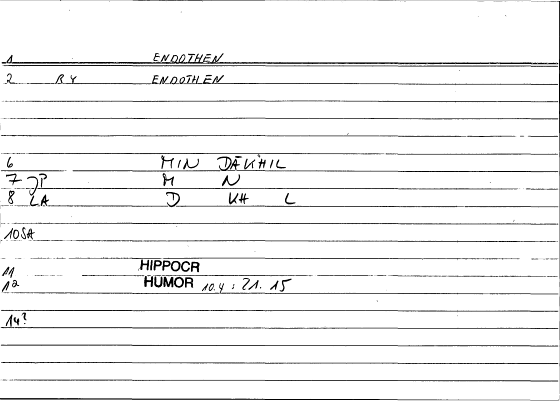 1 ENDOTHEN
2 RY ENDOTHEN
6 MIN DAKHIL
7 JP M N
8 LA D KH L
10 SA
11 HIPPOCR
12 HUMOR 10.4 : 21. 15
14?